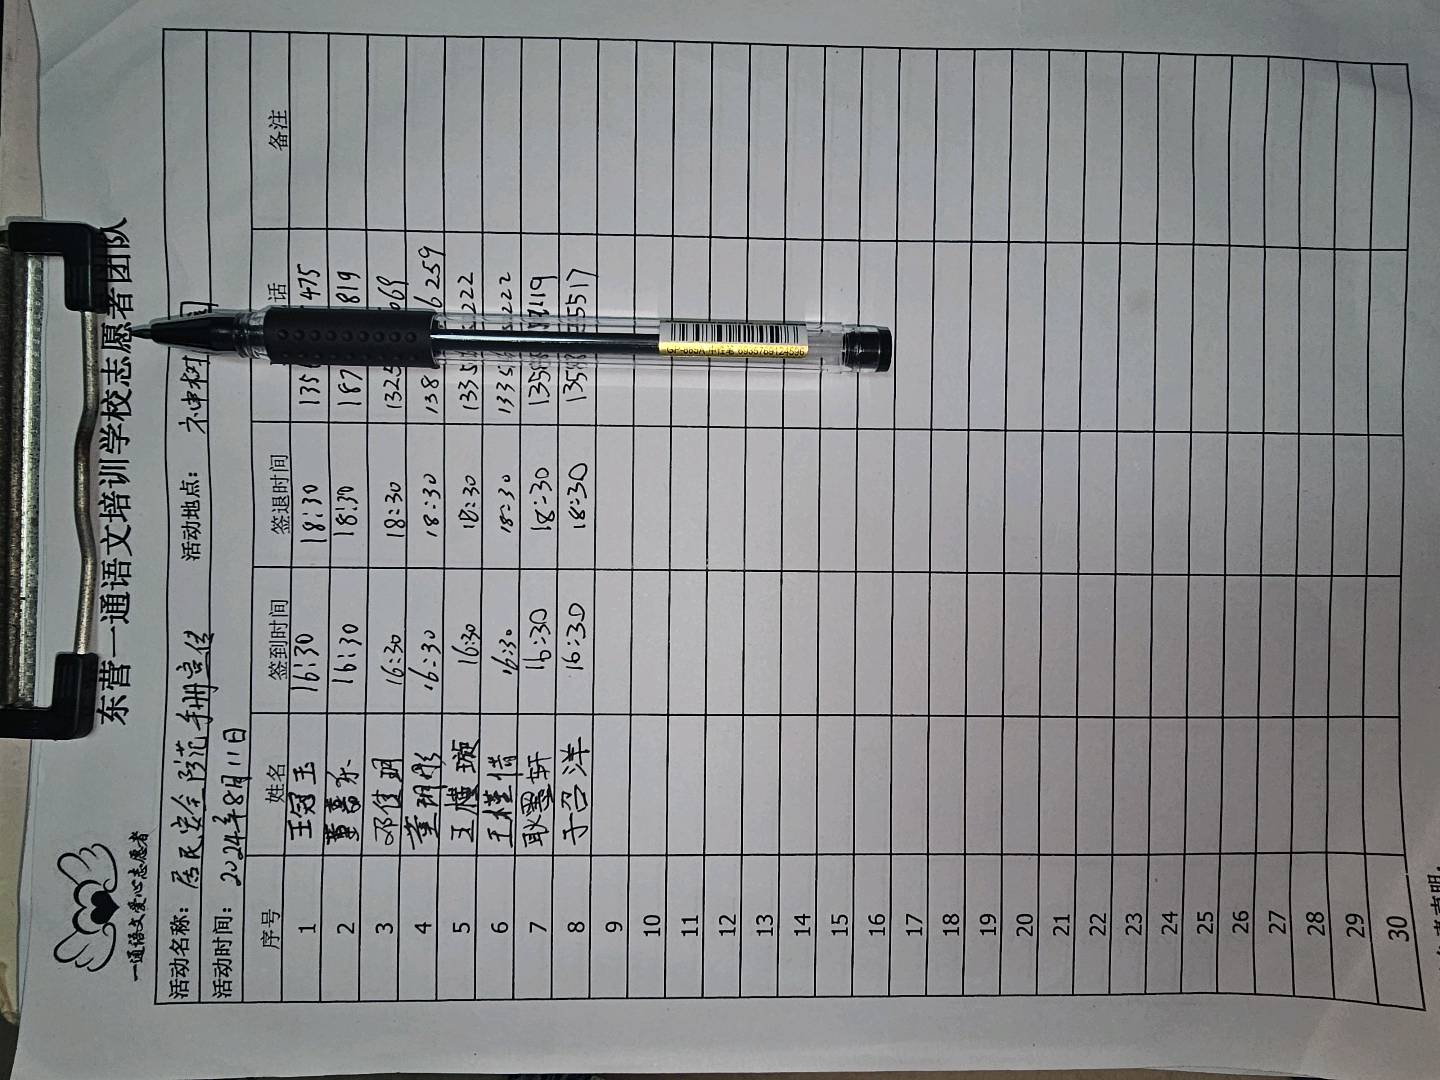 一通语文爱心志愿者
东营一通语文培训学校志愿者团队
活动名称：居民安全防范手册宣传 活动地点：神树
活动时间：2024年8月11日
序号 姓名 签到时间 签退时间 话 备注
1 王冠玉 16:30 18:30 135 475
2 董嘉乐 16:30 18:30 187 819
3 邓佳玥 16:30 18:30 132 069
4 董玥彤 16:30 18:30 138 6259
5 王槿璇 16:30 18:30 1335 222
6 王槿倩 16:30 18:30 1335 222
7 耿墨轩 16:30 18:30 1358 2119
8 于召洋 16:30 18:30 1358 5517
9
10
11
12
13
14
15
16
17
18
19
20
21
22
23
24
25
26
27
28
29
30
GP-009A 中性笔 6935769124596